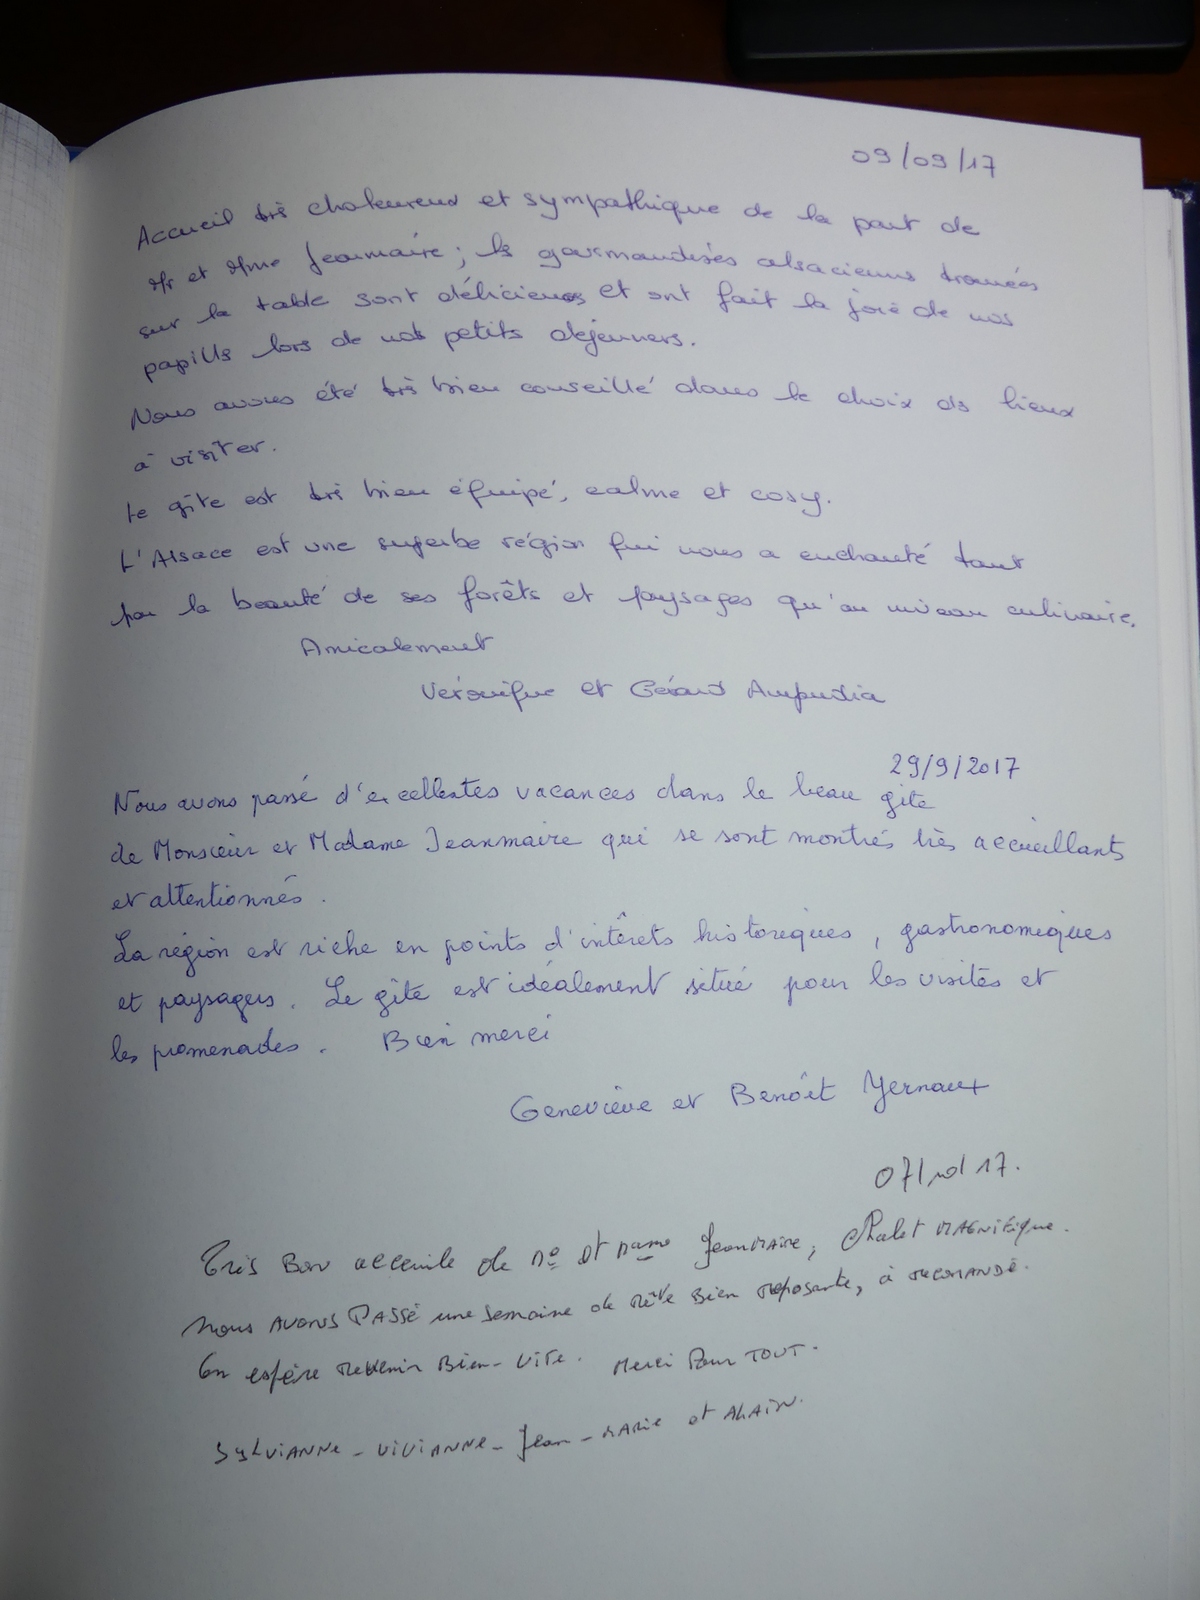 09/09/17
Accueil très chaleureux et sympathique de la part de
Mr et Mme Jeanmaire ; les gourmandises alsaciennes trouvées
sur la table sont délicieuses et ont fait la joie de nos
papilles lors de nos petits dejeuners.
Nous avons été très bien conseillé dans le choix des lieux
à visiter.
Le gîte est très bien équipé, calme et cosy.
L'Alsace est une superbe région qui nous a enchanté tant
par la beauté de ses forêts et paysages qu'au niveau culinaire.
Amicalement
Véronique et Gérard Ampudia
29/9/2017
Nous avons passé d'excellentes vacances dans le beau gîte
de Monsieur et Madame Jeanmaire qui se sont montrés très accueillants
et attentionnés.
La région est riche en points d'intérêts historiques, gastronomiques
et paysagers. Le gîte est idéalement situé pour les visites et
les promenades. Bien merci
Geneviève et Benoît Yernaux
07/10/17.
Très Bon acceuile de Mr et Mame JeanMAIRE, Chalet MAGNIFIQUE.
Nous AVONS PASSÉ une semaine de Rêve Bien Reposante, à recomandé.
On espère Revenir Bien-Vite. Merci Pour TOUT.
SYLVIANNE - VIVIANNE - Jean-MARIE et ALAIN.